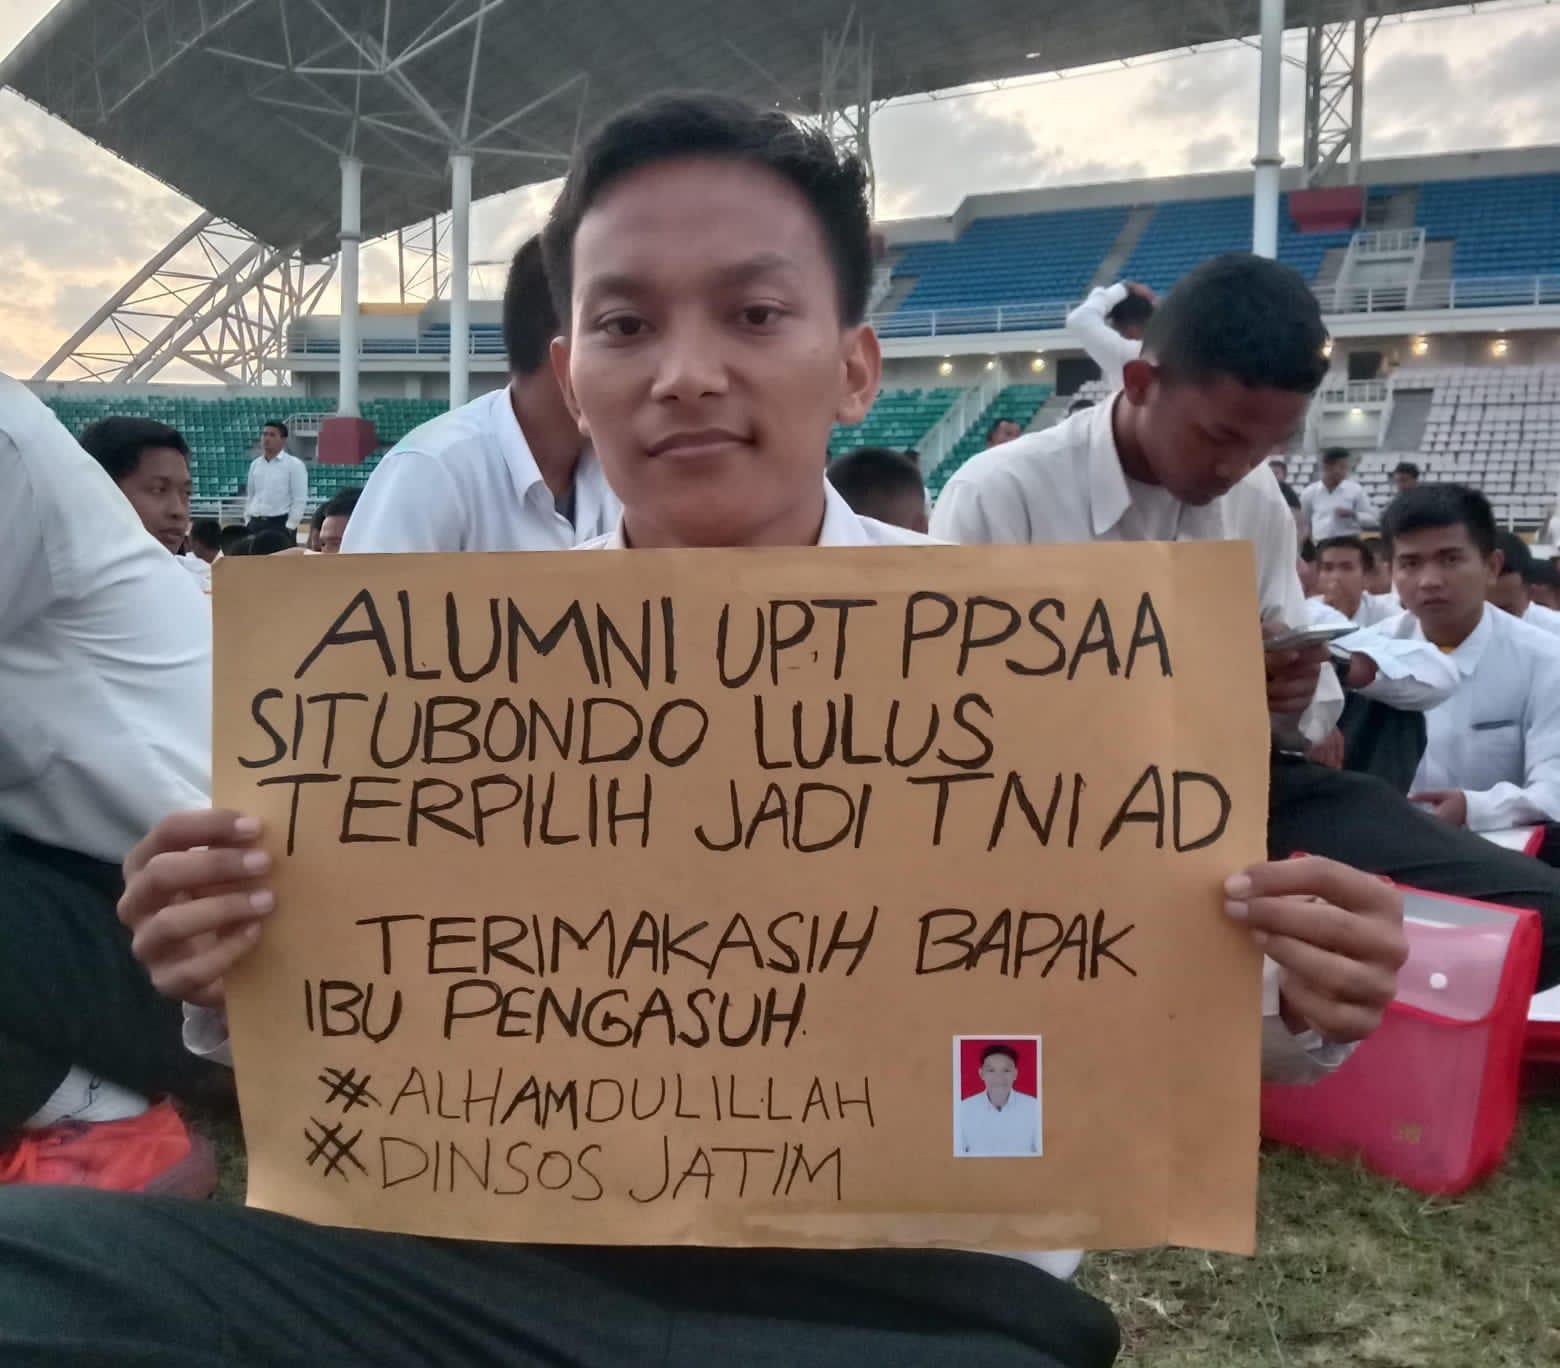 ALUMNI UPT PPSAA
SITUBONDO LULUS
TERPILIH JADI TNI AD
TERIMAKASIH BAPAK
IBU PENGASUH.
#ALHAMDULILLAH
#DINSOS JATIM